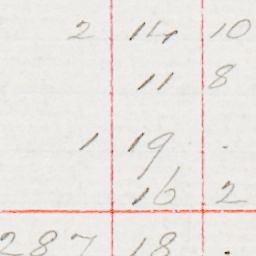 2 14 10
11 8
1 19 .
16 2
287 18 .